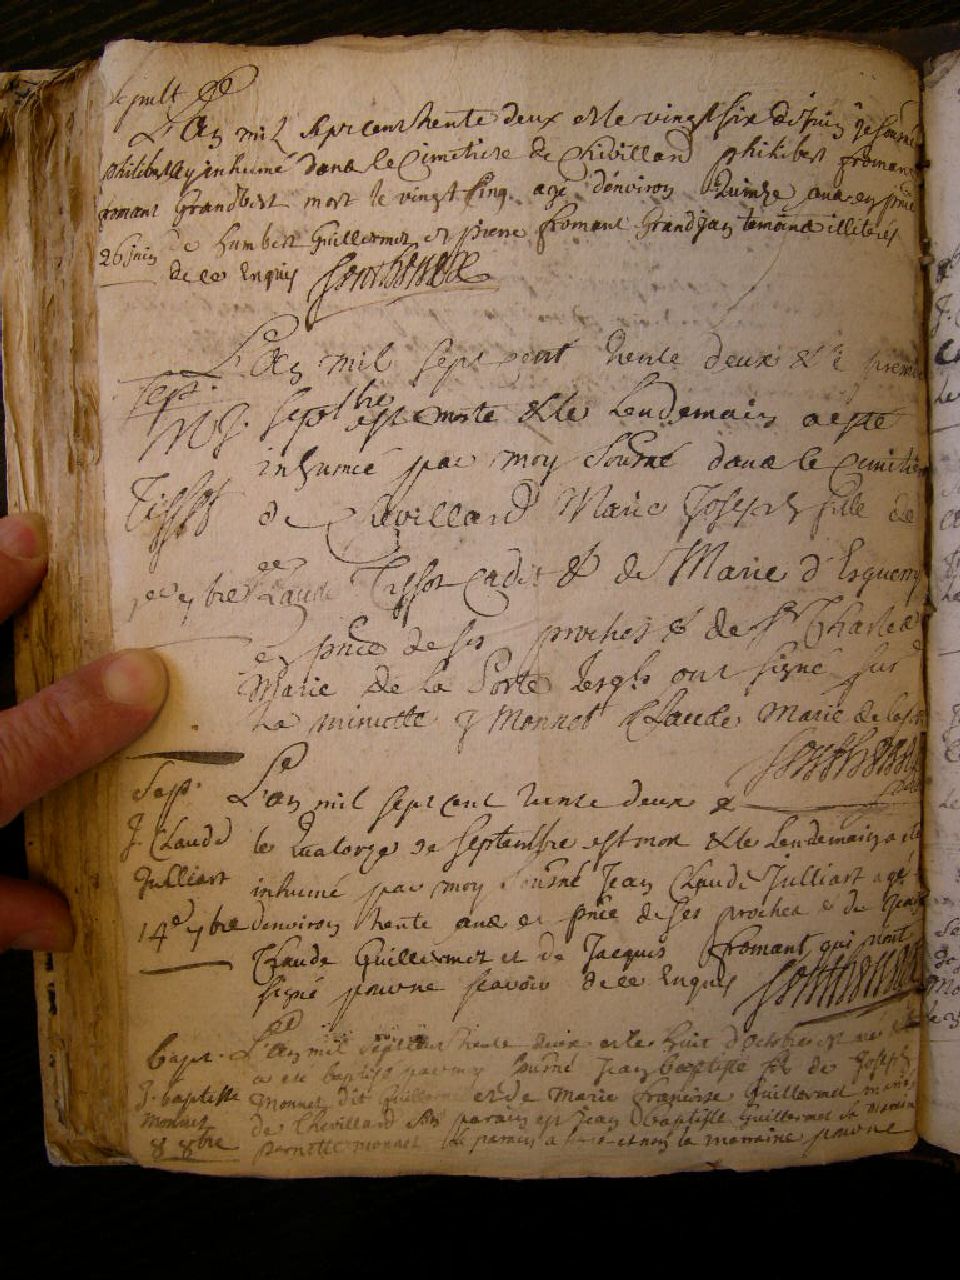 sepult
L'An mil sept cent trente deux et le vingt six de Juin Je soub.né
philibert ay inhumé dans le Cimetiere de Chevillard philibert fromant
fromant Grandbest mort le vingt Cinq agé d'environ quinze ans en pñce
26 juin de humbert Guillermet et pierre fromant Grandjan temoins illiterés
de ce Enquis Southonnax
L'An mil sept cent trente deux & le premier
sep.
M J. septbre est morte & le Lendemain a esté
inhumée par moy Sousné dans le Cimitiere
Tissot de Chevillard Marie Joseph fille de
Claude Tissot cadet & de Marie d'Esquerny
7bre
en pñce de ses proches & de Sr Charles
Marie de la Porte Lesqls ont signé sur
La minutte J Monnet Claude Marie de laporte
Southonnax
Sep. L'An mil sept cent trente deux &
J. Claude le quatorze de septembre est mort & le Lendemain a été
Julliart inhumé par moy Sousné Jean Claude Julliart agé
14e 7bre d'environ trente ans en pñce de ses proches & de Jean
Claude Guillermet et de Jacques fromant qui n'ont
signé pour ne scavoir de ce Enquis Southonnax
bapt. L'An mil sept cent trente deux et le huit d'octobre est né &
a été baptisé par moy Sousné Jean baptiste fils de Joseph
J. baptiste Monnet dit Guillermet et de Marie francoise Guillermet mariés
Monnet de Chevillard son parain est Jean Baptiste Guillermet sa maraine
8 8bre pernette monnet le parain a signé et non la marraine pour ne